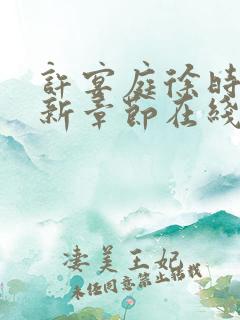 許宴庭徐時
新章節在綫
凄美王妃
未经同意禁止转载